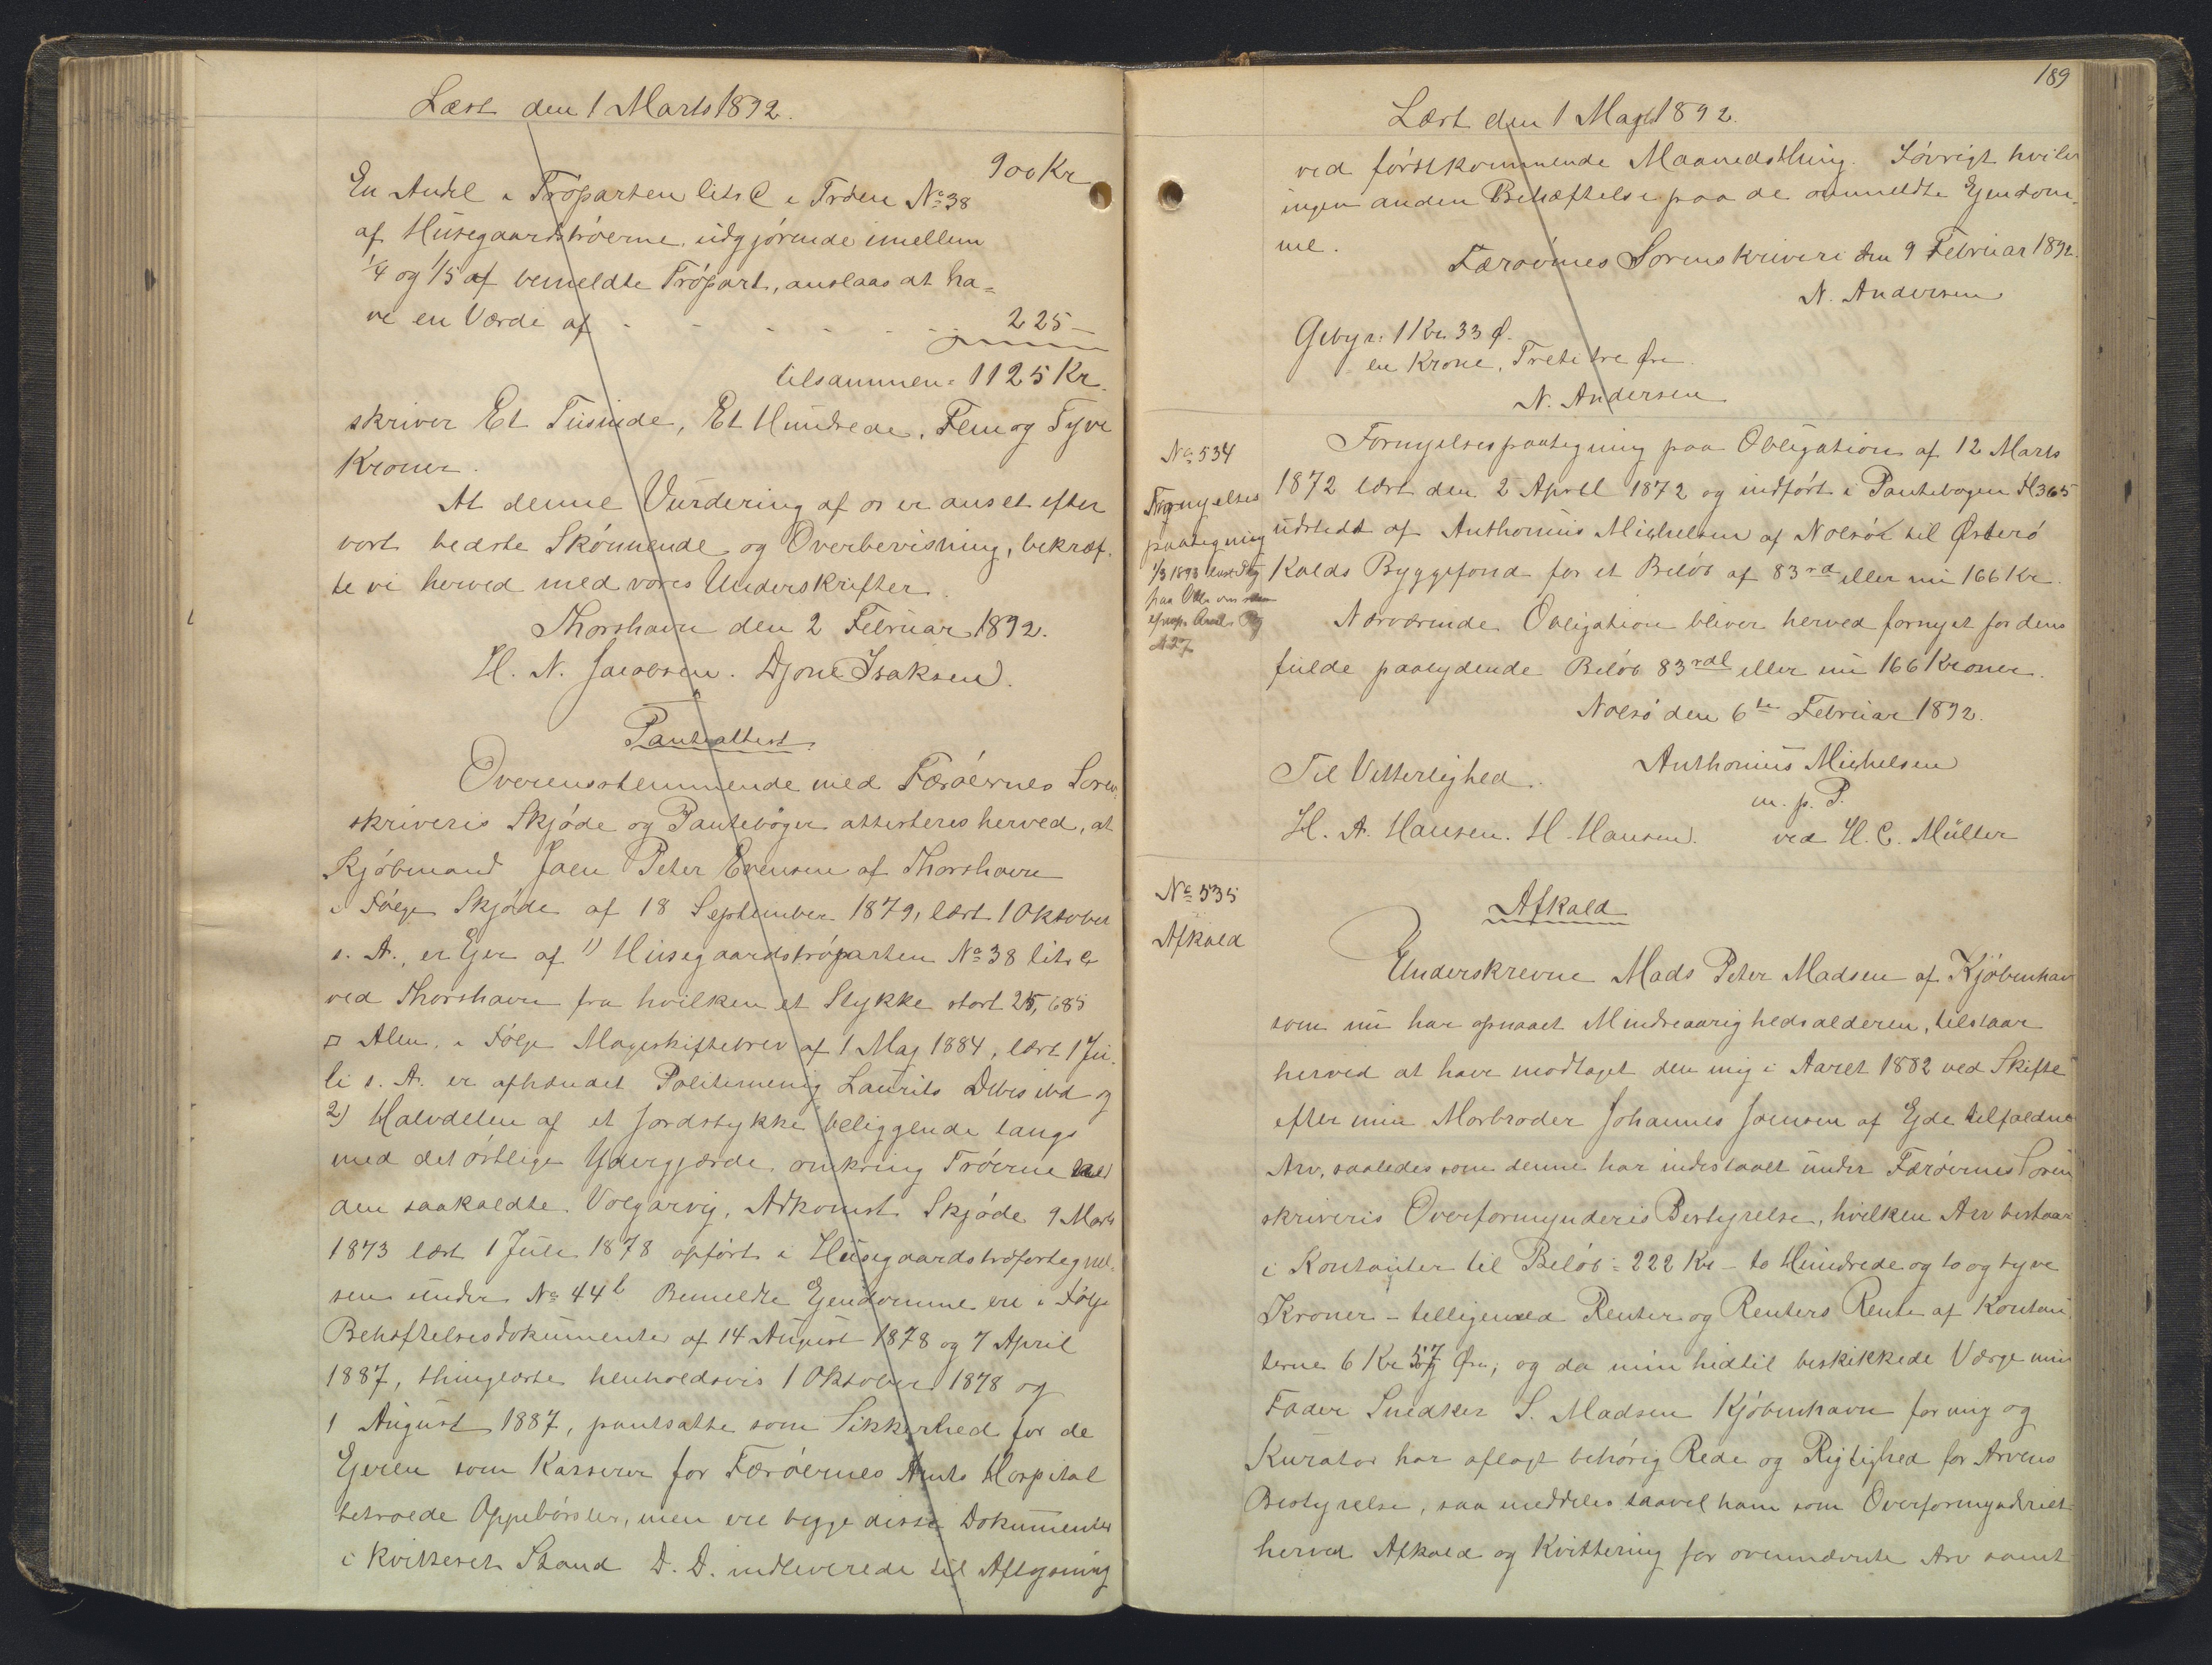 Læst den 1 Marts 1892.
900 Kr
En Andel i Tröparten litr. C i Tröen No 38
af Húsegaardströerne, údgjörende imellem
1/4 og 1/5 af bemeldte Tröpart, anslaas at ha=
ve en Værdi af - - - - - - 225 -
tilsammen = 1125 Kr.
skriver Et Túsinde, Et Húndrede, Fem og Tyve
Kroner.
At denne Vúrdering af os er anset efter
vort bedste Skönnende og Overbevisning, bekræf-
te vi herved med vores Underskrifter.
Thorshavn den 2 Febrúar 1892.
H. N. Jacobsen. Djone Isaksen.
Panteattest.
Overensstemmende med Færöernes Soren-
skriveris Skjöde og Panteböger attesteres herved, at
Kjöbmand Joen Peter Evensen af Thorshavn
i Fölge Skjöde af 18 September 1879, læst 1 Oktober
s. A., er Ejer af 1) Húsegaardströparten No 38 litr. C
ved Thorshavn fra hvilken et Stykke stort 25,685
□ Alen, i Fölge Mageskiftebrev af 1 Maj 1884, læst 1 Jú-
li s. A. er afhændet Politimenig Laurits Debes ibd og
2) Halvdelen af et Jordstykke beliggende langs
med det östlige Ydergjærde omkring Tröerne ved
den saakaldte Volgarvig, Adkomst Skjöde 9 Marts
1873 læst 1 Júli 1878 opfört i Húsegaardströfortegnel-
sen únder No 44b Bemeldte Ejendomme ere i Fölge
Behæftelsesdokúmenter af 14 Aúgúst 1878 og 7 April
1887, thinglæste henholdsvis 1 Oktober 1878 og
1 Aúgúst 1887, pantsatte som Sikkerhed for de
Ejeren som Kasserer for Færöernes Amts Hospital
betroede Oppebörsler, men ere begge disse Dokúmenter
i kvitteret Stand D. D. indleverede til Aflysning
189
Læst den 1 Marts 1892.
ved förstkommende Maanedsthing. Iövrigt hviler
ingen anden Behæftelse paa de anmeldte Ejendom-
me.
Færöernes Sorenskriveri den 9 Febrúar 1892.
N. Andersen
Gebyr: 1 Kr. 33 Ø.
en Krone, Treti tre Øre
N. Andersen
No 534
Fornyelses
paategning
1/3 1893
Fornyelsespaategning paa Obligation af 12 Marts
1872 læst den 2 April 1872 og indfört i Pantebogen H 365
údstedt af Anthoniús Michelsen af Nolsöe til Østerö
Kalds Byggefond for et Belöb af 83rd eller nú 166 Kr.
Nærværende Obligation bliver herved fornyet for dens
fúlde paalydende Belöb 83rdl eller nú 166 Kroner.
Nolsö den 6te Febrúar 1892.
Anthoniús Michelsen
m. p. P.
ved H. C. Müller
Til Vitterlighed.
H. A. Hansen. H. Hansen.
No 535
Afkald
Afkald
Underskrevne Mads Peter Madsen af Kjöbenhavn
som nú har opnaaet Mindreaarighedsalderen, tilstaar
herved at have modtaget den mig i Aaret 1882 ved Skifte
efter min Morbroder Johannes Joensen af Ejde tilfaldne
Arv, saaledes som denne har indestaaet únder Færöernes Soren
skriveris Overformynderis Bestyrelse, hvilken Arv bestaar
i Kontanter til Belöb = 222 Kr - to Húndrede og to og tyve
Kroner - tilligemed Renter og Renters Rente af Kontan
terne 6 Kr 57 Øre; og da min hidtil beskikkede Værge min
Fader Snedker S. Madsen Kjöbenhavn for mig og
Kúrator har aflagt behörig Rede og Rigtighed for Arvens
Bestyrelse, saa meddeles saavel ham som Overformynderiet
herved Afkald og Kvittering for ovennævnte Arv samt